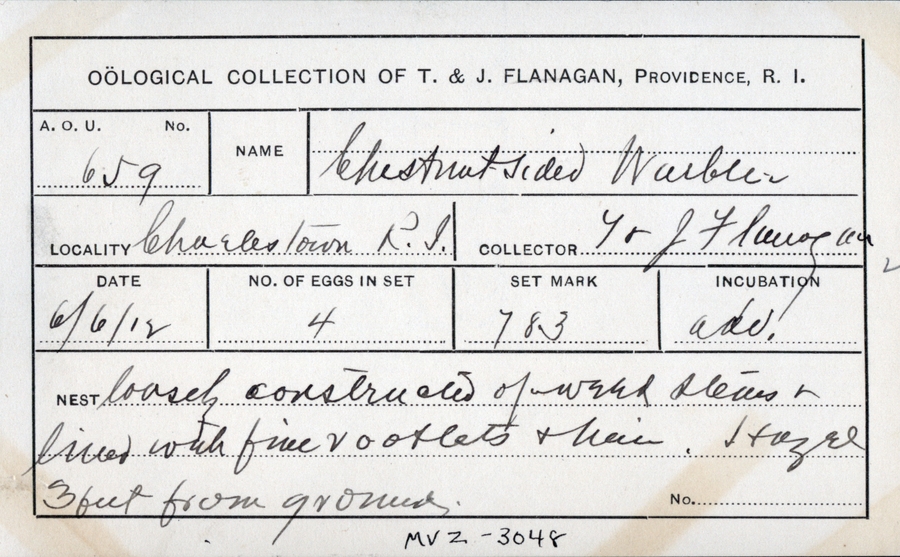 OÖLOGICAL COLLECTION OF T. & J. FLANAGAN, PROVIDENCE, R. I.
A. O. U. No.
659
NAME Chestnut sided Warbler
LOCALITY Charlestown R. I. COLLECTOR T & J Flanagan
DATE NO. OF EGGS IN SET SET MARK INCUBATION
6/6/12 4 783 adv.
NEST loosely constructed of weed stems &
lined with fine rootlets & hair. Hazel
3 feet from ground.
No.
MVZ-3048